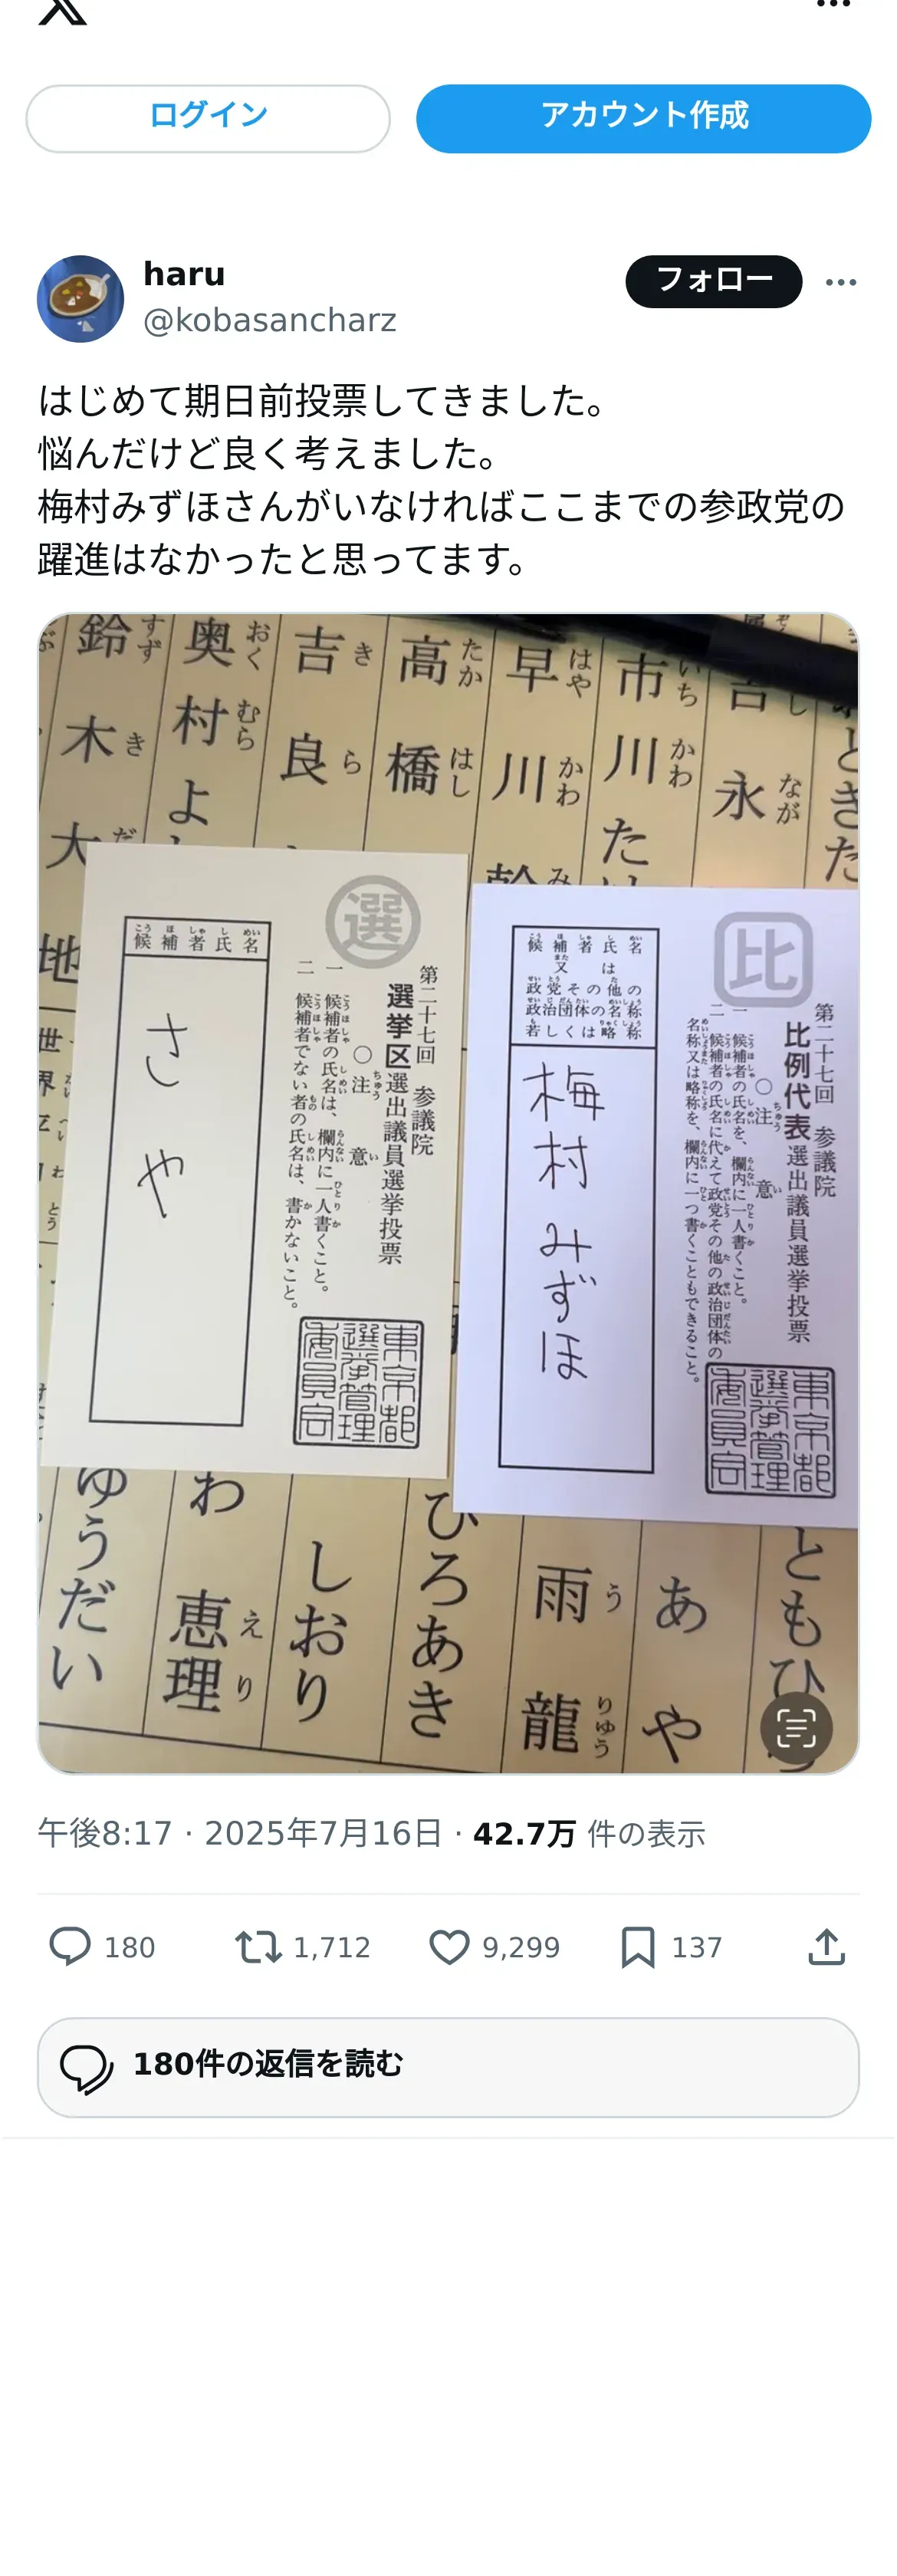 ログイン
アカウント作成
haru
@kobasancharz
フォロー
はじめて期日前投票してきました。
悩んだけど良く考えました。
梅村みずほさんがいなければここまでの参政党の
躍進はなかったと思ってます。
永 なが
市川 いちかわ
た
早川 はやかわ
高橋 たかはし
吉良 きら
奥村 おくむら
よ
鈴木 すずき
大
地
世
界
ともひ
あや
雨龍 うりゅう
ひろあき
しおり
わ
恵理 えり
ゆうだい
比
第二十七回 参議院
比例代表選出議員選挙投票
○注意 ちゅうい
一 候補者の氏名を、欄内に一人書くこと。
二 候補者の氏名に代えて政党その他の政治団体の
名称又は略称を、欄内に一つ書くこともできること。
候補者氏名
又は
政党その他の
政治団体の名称
若しくは略称
梅村みずほ
東京都
選挙管理
委員会
選
第二十七回 参議院
選挙区選出議員選挙投票
○注意 ちゅうい
一 候補者の氏名は、欄内に一人書くこと。
二 候補者でない者の氏名は、書かないこと。
候補者氏名 こうほしゃしめい
さや
東京都
選挙管理
委員会
午後8:17 · 2025年7月16日 · 42.7万 件の表示
180
1,712
9,299
137
180件の返信を読む